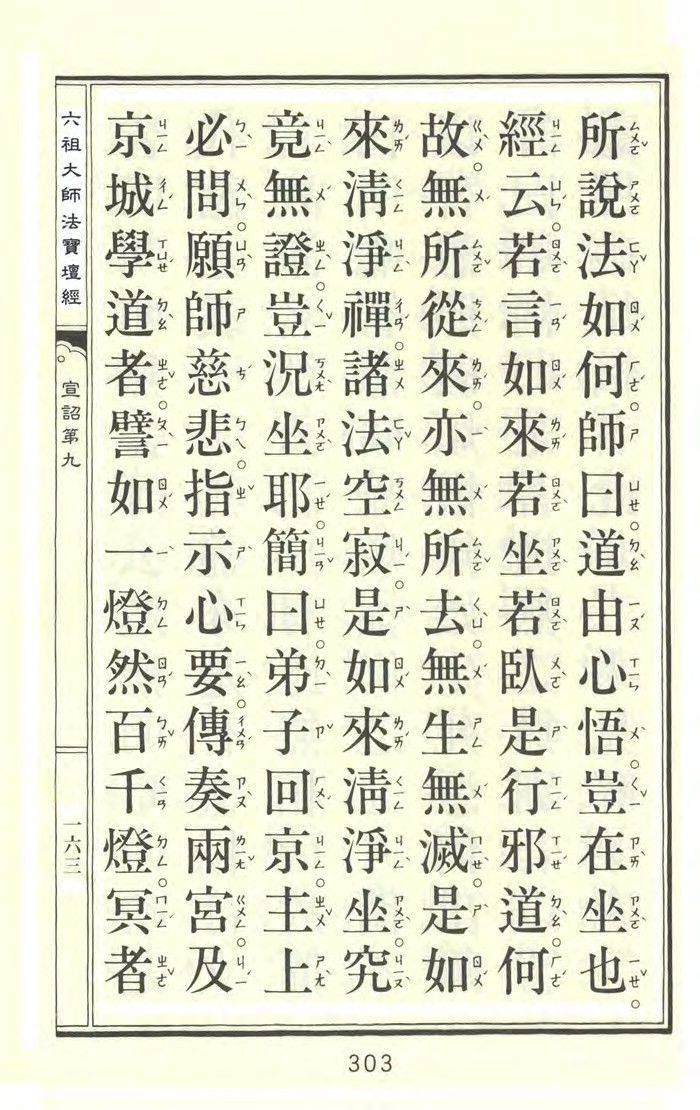 所說法如何。師曰。道由心悟。豈在坐也。
經云。若言如來若坐若臥是行邪道。何
故。無所從來。亦無所去。無生無滅。是如
來清淨禪。諸法空寂。是如來清淨坐。究
竟無證。豈況坐耶。簡曰。弟子回京。主上
必問。願師慈悲。指示心要。傳奏兩宮。及
京城學道者。譬如一燈然百千燈。冥者
六祖大師法寶壇經
宣詔第九
一六三
303